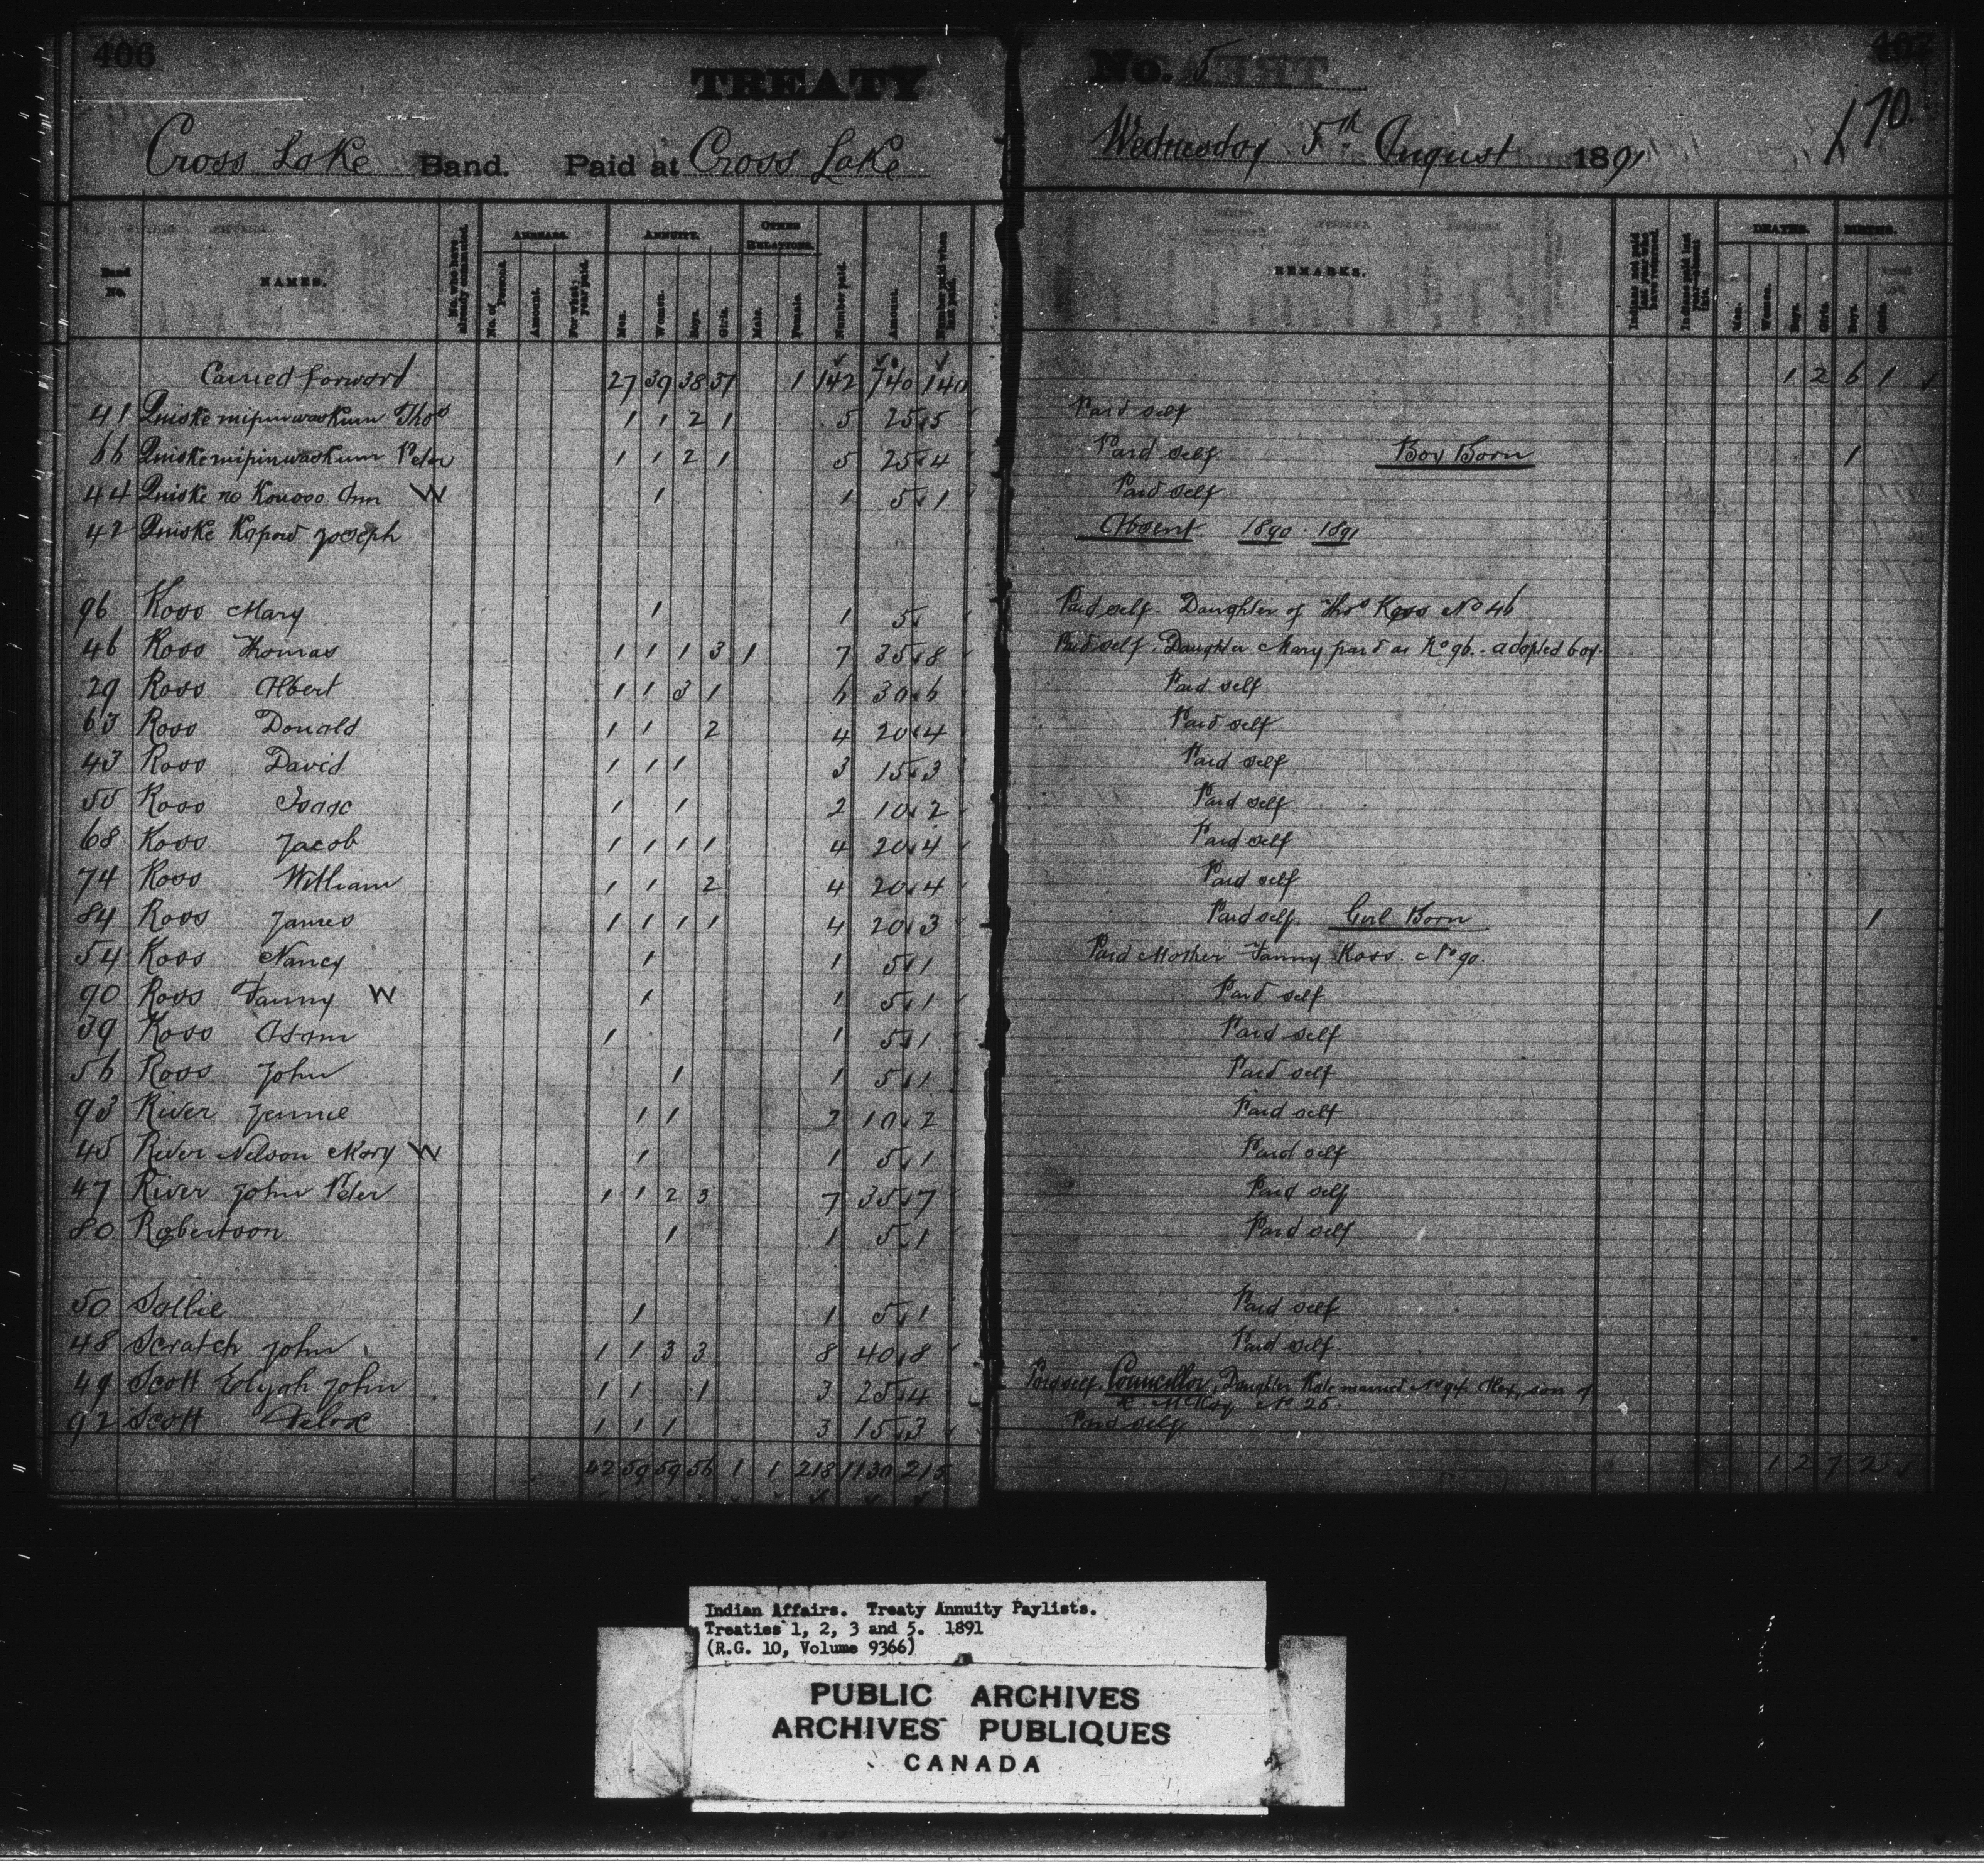 406
TREATY
Cross Lake Band. Paid at Cross Lake
No. 5
407
170.
Wednesday 5th August 1891
Band No.
NAMES.
No. who have already commuted.
ARREARS.
No. of Persons.
Amount.
For what year paid.
ANNUITY.
Men.
Women.
Boys.
Girls.
OTHER RELATIONS.
Male.
Female.
Number paid.
Amount.
Number paid when last paid.
REMARKS.
Indians not paid last year who have returned.
Indians paid last year—absent
DEATHS.
Men.
Women.
Boys.
Girls.
BIRTHS.
Boys.
Girls.
Carried forward 27 39 38 37 1 142 740 140 1 2 6 1
41 Thos 1 1 2 1 5 25 5 Paid self
66 Peter 1 1 2 1 5 25 4 Paid self Boy Born 1
44 Ann W 1 1 5 1 Paid self
42 Joseph Absent 1890 1891
96 Ross Mary 1 1 5 Paid self. Daughter of Thos Ross No 46
46 Ross Thomas 1 1 1 3 1 7 35 8 Paid self. Daughter Mary paid as No 96. adopted boy.
29 Ross Albert 1 1 3 1 6 30 6 Paid self
63 Ross Donald 1 1 2 4 20 4 Paid self
43 Ross David 1 1 1 3 15 3 Paid self
55 Ross Isaac 1 1 2 10 2 Paid self
68 Ross Jacob 1 1 1 1 4 20 4 Paid self
74 Ross William 1 1 2 4 20 4 Paid self
84 Ross James 1 1 1 1 4 20 3 Paid self. Girl Born 1
54 Ross Nancy 1 1 5 1 Paid Mother Fanny Ross. No 90.
90 Ross Fanny W 1 1 5 1 Paid self
39 Ross Adam 1 1 5 1 Paid self
56 Ross John 1 1 5 1 Paid self
93 River Jennie 1 1 2 10 2 Paid self
45 River Nelson Mary W 1 1 5 1 Paid self
47 River John Peter 1 1 2 3 7 35 7 Paid self
80 Robertson 1 1 5 1 Paid self
50 Sallie 1 1 5 1 Paid self
48 Scratch John 1 1 3 3 8 40 8 Paid self.
49 Scott Elijah John 1 1 1 3 25 4 Paid self. Councillor, Daughter Kate married No 94. Alex, son of
McKay No 26.
92 Scott 1 1 1 3 15 3 Paid self
42 59 59 56 1 1 218 1130 215 1 2 7 2
Indian Affairs. Treaty Annuity Paylists.
Treaties 1, 2, 3 and 5. 1891
(R.G. 10, Volume 9366)
PUBLIC ARCHIVES
ARCHIVES PUBLIQUES
CANADA